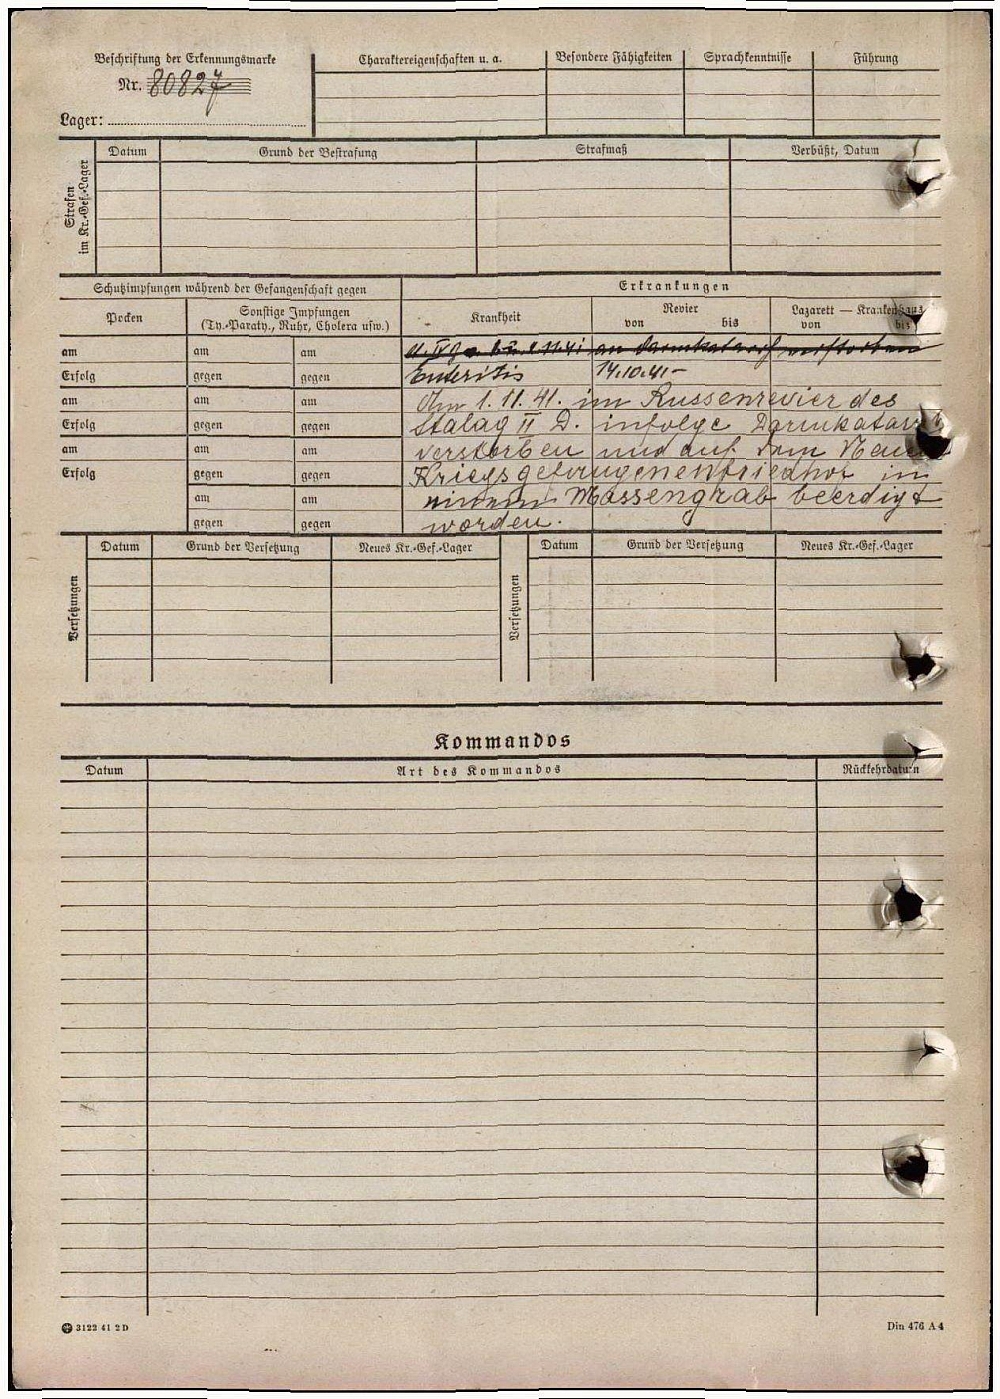 Beschriftung der Erkennungsmarke
Nr. 80827
Lager:
Charaktereigenschaften u. a.
Besondere Fähigkeiten
Sprachkenntnisse
Führung
Strafen
im Kr.-Gef.-Lager
Datum
Grund der Bestrafung
Strafmaß
Verbüßt, Datum
Schutzimpfungen während der Gefangenschaft gegen
Erkrankungen
Pocken
Sonstige Impfungen
(Ty.-Paraty., Ruhr, Cholera usw.)
Krankheit
Revier
von bis
Lazarett — Krankenhaus
von bis
am am am an Darmkatarrh verstorben
Erfolg gegen gegen Enteritis 14.10.41-
am am am Am 1.11.41. im Russenrevier des
Erfolg gegen gegen Stalag II D. infolge Darmkatarrh
am am am verstorben und auf dem Neuen
Erfolg gegen gegen Kriegsgefangenenfriedhof in
am am Massengrab beerdigt
gegen gegen worden.
Versetzungen
Datum
Grund der Versetzung
Neues Kr.-Gef.-Lager
Versetzungen
Datum
Grund der Versetzung
Neues Kr.-Gef.-Lager
Kommandos
Datum
Art des Kommandos
Rückkehrdatum
3122 41 2 D
Din 476 A 4